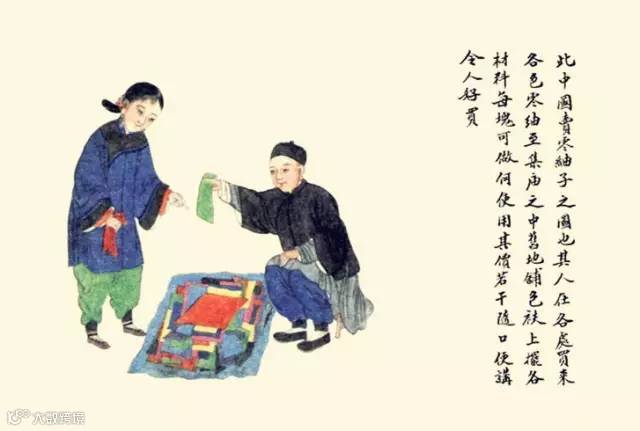 此中國賣零紬子之圖也其人在各處買來
各色零紬至集庙之中舊地舖色袱上擺各
材料每塊可做何使用其價若干隨口便講
令人好買
大数跨境